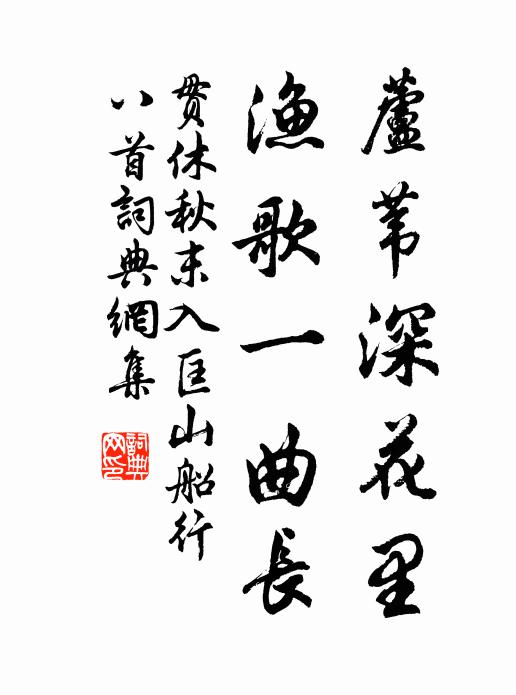 蘆葦深花里
漁歌一曲長
貫休秋末入匡山船行
八首詞典網集
詞典网印